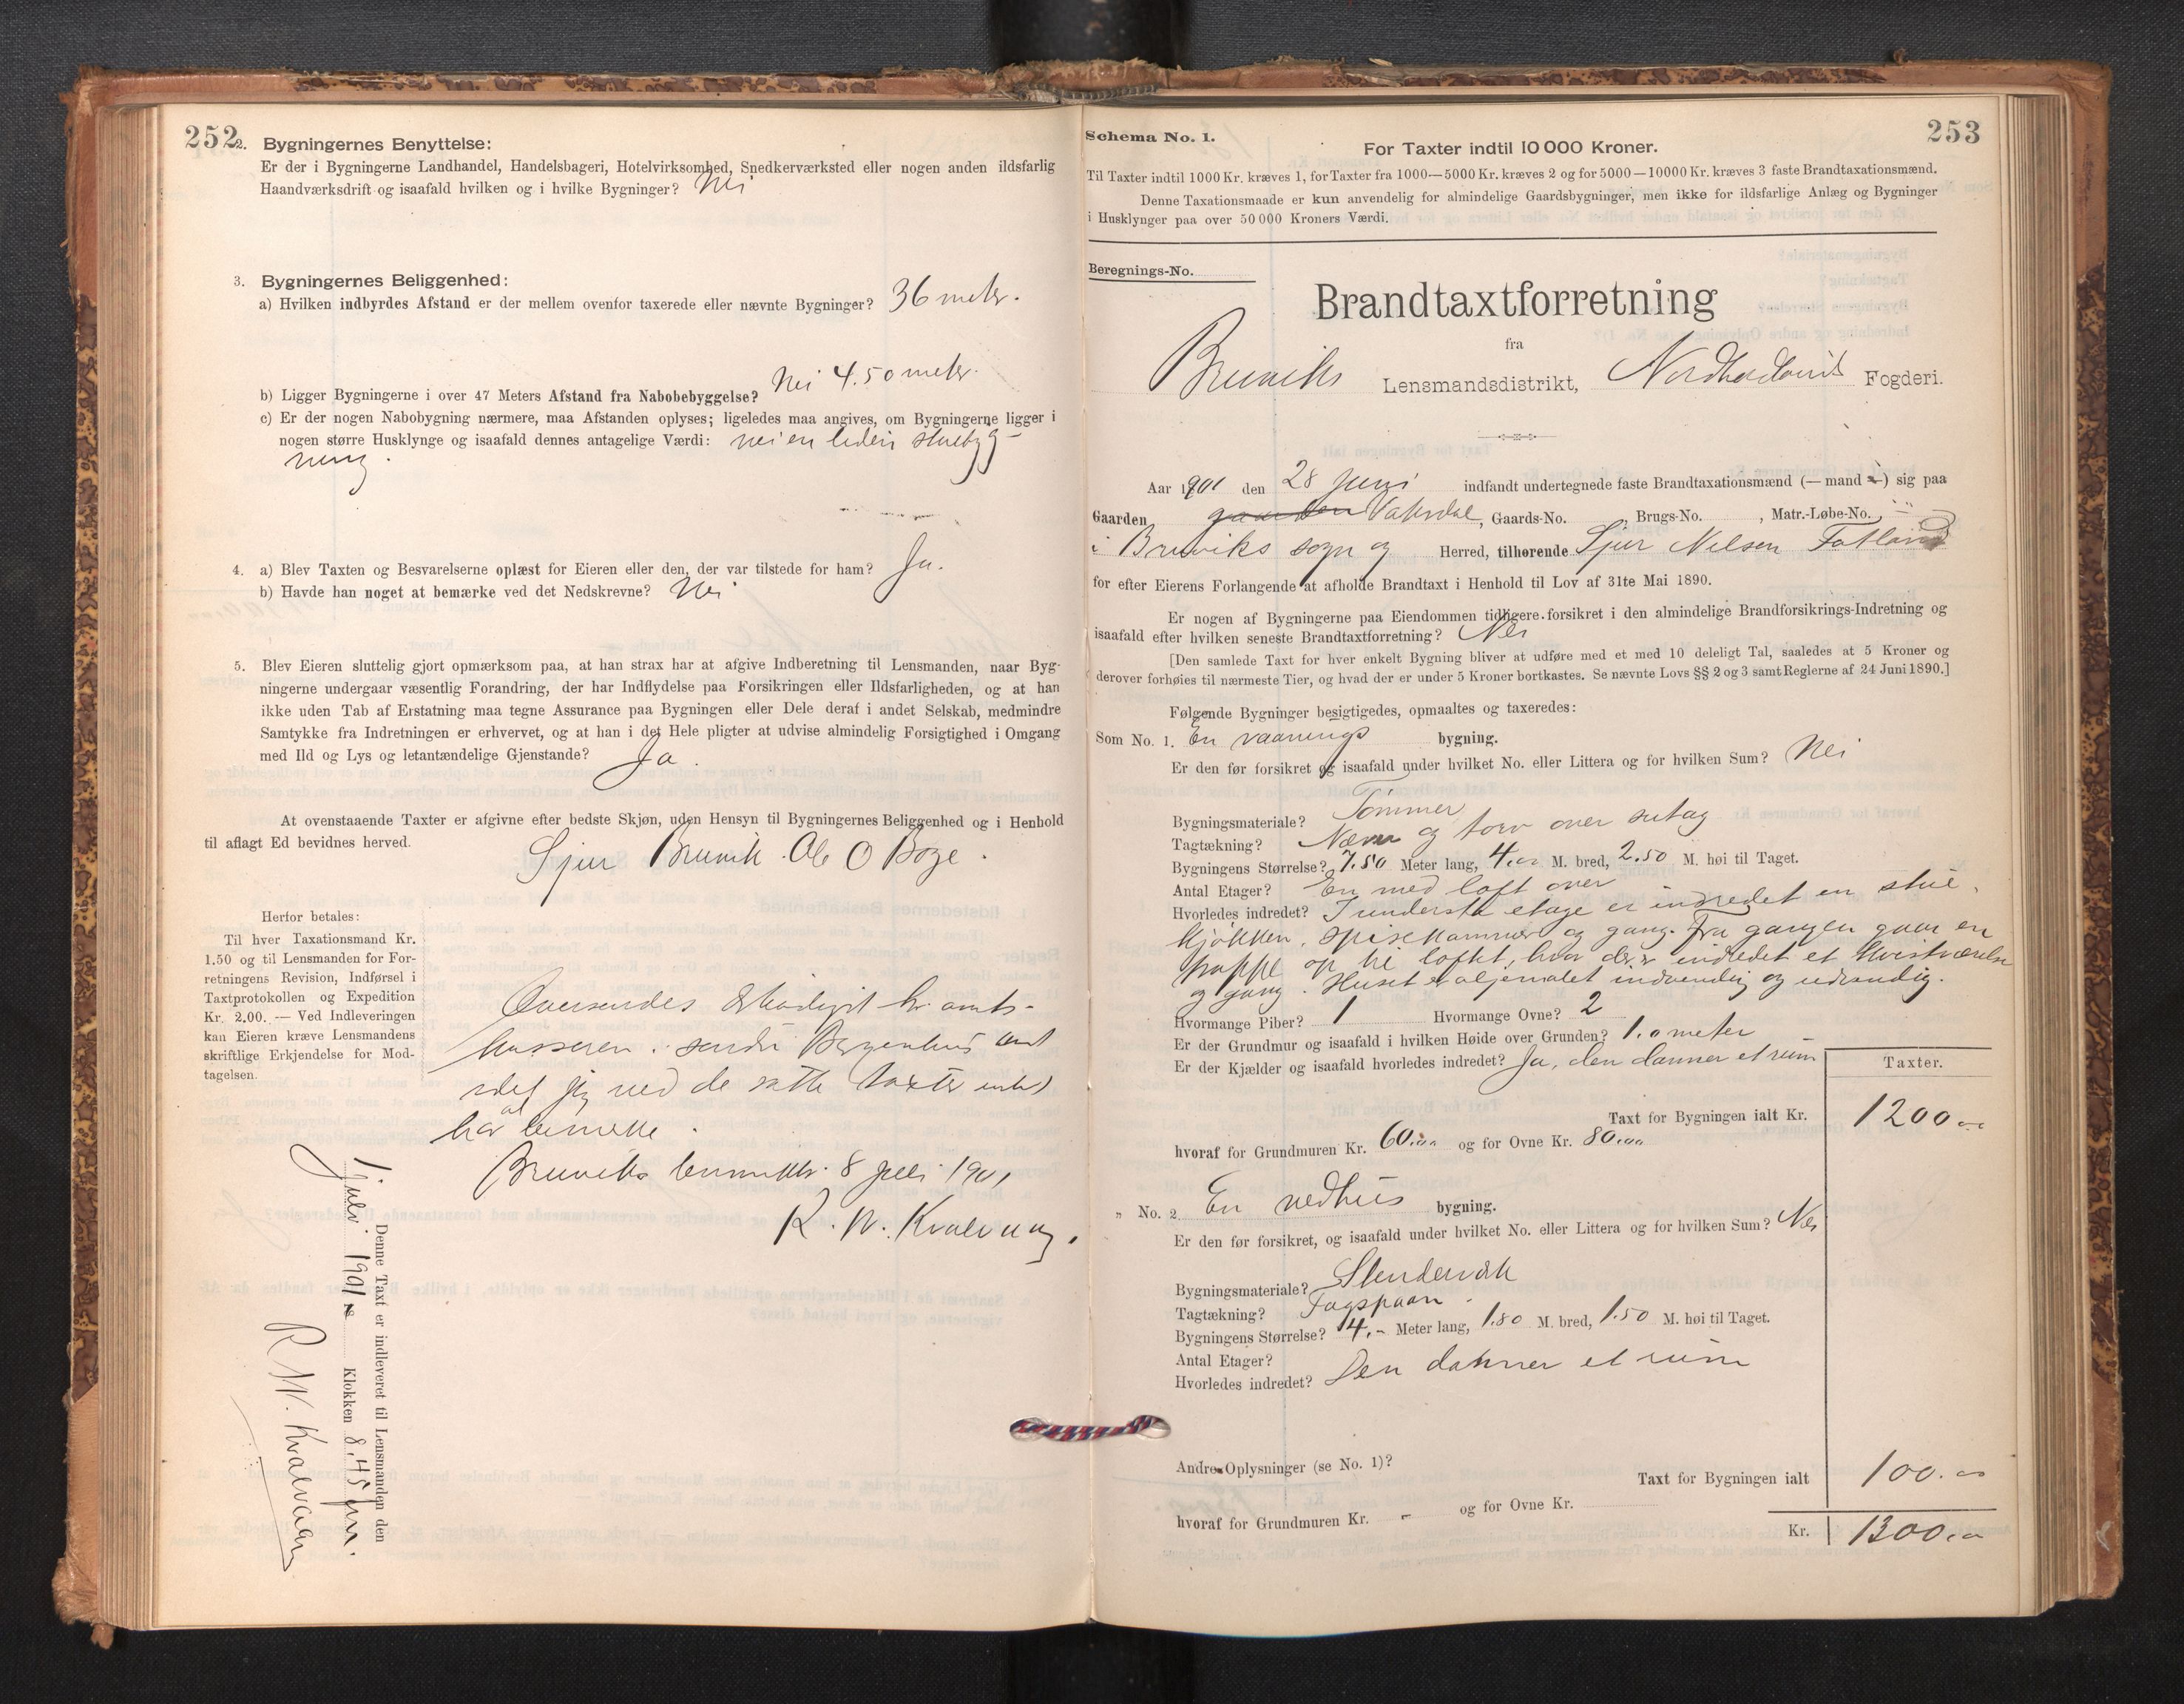 252
2. Bygningernes Benyttelse:
Er der i Bygningerne Landhandel, Handelsbageri, Hotelvirksomhed, Snedkerværksted eller nogen anden ildsfarlig
Haandværksdrift og isaafald hvilken og i hvilke Bygninger? Nei
3. Bygningernes Beliggenhed:
a) Hvilken indbyrdes Afstand er der mellem ovenfor taxerede eller nævnte Bygninger? 36 meter.
b) Ligger Bygningerne i over 47 Meters Afstand fra Nabobebyggelse? Nei 4.50 meter.
c) Er der nogen Nabobygning nærmere, maa Afstanden oplyses; ligeledes maa angives, om Bygningerne ligger i
nogen større Husklynge og isaafald dennes antagelige Værdi: nei en liden stuebyg-
ning.
4. a) Blev Taxten og Besvarelserne oplæst for Eieren eller den, der var tilstede for ham? Ja.
b) Havde han noget at bemærke ved det Nedskrevne? Nei
5. Blev Eieren sluttelig gjort opmærksom paa, at han strax har at afgive Indberetning til Lensmanden, naar Byg-
ningerne undergaar væsentlig Forandring, der har Indflydelse paa Forsikringen eller Ildsfarligheden, og at han
ikke uden Tab af Erstatning maa tegne Assurance paa Bygningen eller Dele deraf i andet Selskab, medmindre
Samtykke fra Indretningen er erhvervet, og at han i det Hele pligter at udvise almindelig Forsigtighed i Omgang
med Ild og Lys og letantændelige Gjenstande? Ja.
At ovenstaaende Taxter er afgivne efter bedste Skjøn, uden Hensyn til Bygningernes Beliggenhed og i Henhold
til aflagt Ed bevidnes herved.
Sjur Bruvik. Ole O Boge.
Herfor betales:
Til hver Taxationsmand Kr.
1.50 og til Lensmanden for For-
retningens Revision, Indførsel i
Taxtprotokollen og Expedition
Kr. 2.00. — Ved Indleveringen
kan Eieren kræve Lensmandens
skriftlige Erkjendelse for Mod-
tagelsen.
Oversendes ærbødigst hr. amts-
kasseren i søndre Bergenhus amt
idet jeg ved de satte taxter intet
har at bemærke.
Bruviks lensmktr. 8 juli 1901
K. W. Kvalvaag.
Denne Taxt er indleveret til Lensmanden den
1 juli 1901 Klokken 8.45 fm.
K W. Kvalvaag
253
Schema No. 1.
For Taxter indtil 10 000 Kroner.
Til Taxter indtil 1000 Kr. kræves 1, for Taxter fra 1000—5000 Kr. kræves 2 og for 5000—10000 Kr. kræves 3 faste Brandtaxationsmænd.
Denne Taxationsmaade er kun anvendelig for almindelige Gaardsbygninger, men ikke for ildsfarlige Anlæg og Bygninger
i Husklynger paa over 50 000 Kroners Værdi.
Beregnings-No.
Brandtaxtforretning
fra
Bruviks Lensmandsdistrikt, Nordhordlands Fogderi.
Aar 1901 den 28 juni indfandt undertegnede faste Brandtaxationsmænd (— mand —) sig paa
Gaarden gaarden Vaksdal, Gaards-No. , Brugs-No. , Matr.-Løbe-No.
i Bruviks sogn og Herred, tilhørende Sjur Nilsen Fatland
for efter Eierens Forlangende at afholde Brandtaxt i Henhold til Lov af 31te Mai 1890.
Er nogen af Bygningerne paa Eiendommen tidligere forsikret i den almindelige Brandforsikrings-Indretning og
isaafald efter hvilken seneste Brandtaxtforretning? Nei
[Den samlede Taxt for hver enkelt Bygning bliver at udføre med et med 10 deleligt Tal, saaledes at 5 Kroner og
derover forhøies til nærmeste Tier, og hvad der er under 5 Kroner bortkastes. Se nævnte Lovs §§ 2 og 3 samt Reglerne af 24 Juni 1890.]
Følgende Bygninger besigtigedes, opmaaltes og taxeredes:
Som No. 1. En vaanings bygning.
Er den før forsikret og isaafald under hvilket No. eller Littera og for hvilken Sum? Nei
Bygningsmateriale? Tømmer
Tagtækning? Næver og torv over sutag
Bygningens Størrelse? 7.50 Meter lang, 4.00 M. bred, 2.50 M. høi til Taget.
Antal Etager? En med loft over
Hvorledes indredet? I underste etage er indredet en stue,
kjøkken, spisekammer og gang. Fra gangen gaar en
trappe op til loftet, hvor der er indredet et kvistværelse
og gang. Huset er oljemalet indvendig og udvendig.
Hvormange Piber? 1 Hvormange Ovne? 2
Er der Grundmur og isaafald i hvilken Høide over Grunden? 1.0 meter
Er der Kjælder og isaafald hvorledes indredet? Ja, den danner et rum
Taxter.
Taxt for Bygningen ialt Kr. 1200.00
hvoraf for Grundmuren Kr. 60.00 og for Ovne Kr. 80.00
„ No. 2. En vedhus bygning.
Er den før forsikret, og isaafald under hvilket No. eller Littera og for hvilken Sum? Nei
Bygningsmateriale? Stenderværk
Tagtækning? Tagspaan.
Bygningens Størrelse? 4.- Meter lang, 1.80 M. bred, 1.50 M. høi til Taget.
Antal Etager?
Hvorledes indredet? Den danner et rum
Andre Oplysninger (se No. 1)?
Taxt for Bygningen ialt 100.00
hvoraf for Grundmuren Kr. - og for Ovne Kr.
Kr. 1300.00